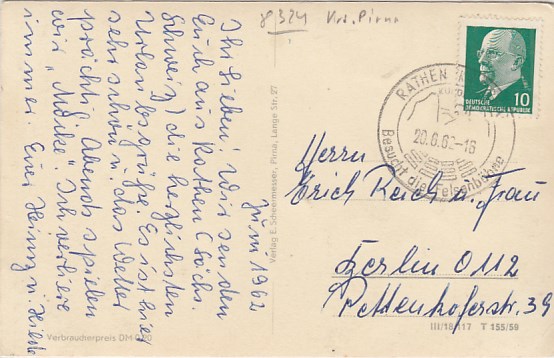 8324 Krs. Pirna
Juni 1962
Ihr Lieben! Wir senden
Euch aus Rathen (Sächs.
Schweiz) die herzlichsten
Urlaubsgrüße. Es ist hier
sehr schön u. das Wetter
prächtig. Abends spielen
wir „Mücke“. Ich verliere
immer. Eure Heinz u. Hilde
Verbraucherpreis DM 0,20
Verlag E. Scheermesser, Pirna, Lange Str. 27
RATHEN
20.6.62-16
Besucht die Felsenbühne
10
DEUTSCHE
DEMOKRATISCHE REPUBLIK
Herrn
Erich Reich u. Frau
Berlin O112
Pettenkoferstr. 39
III/18/117 T 155/59